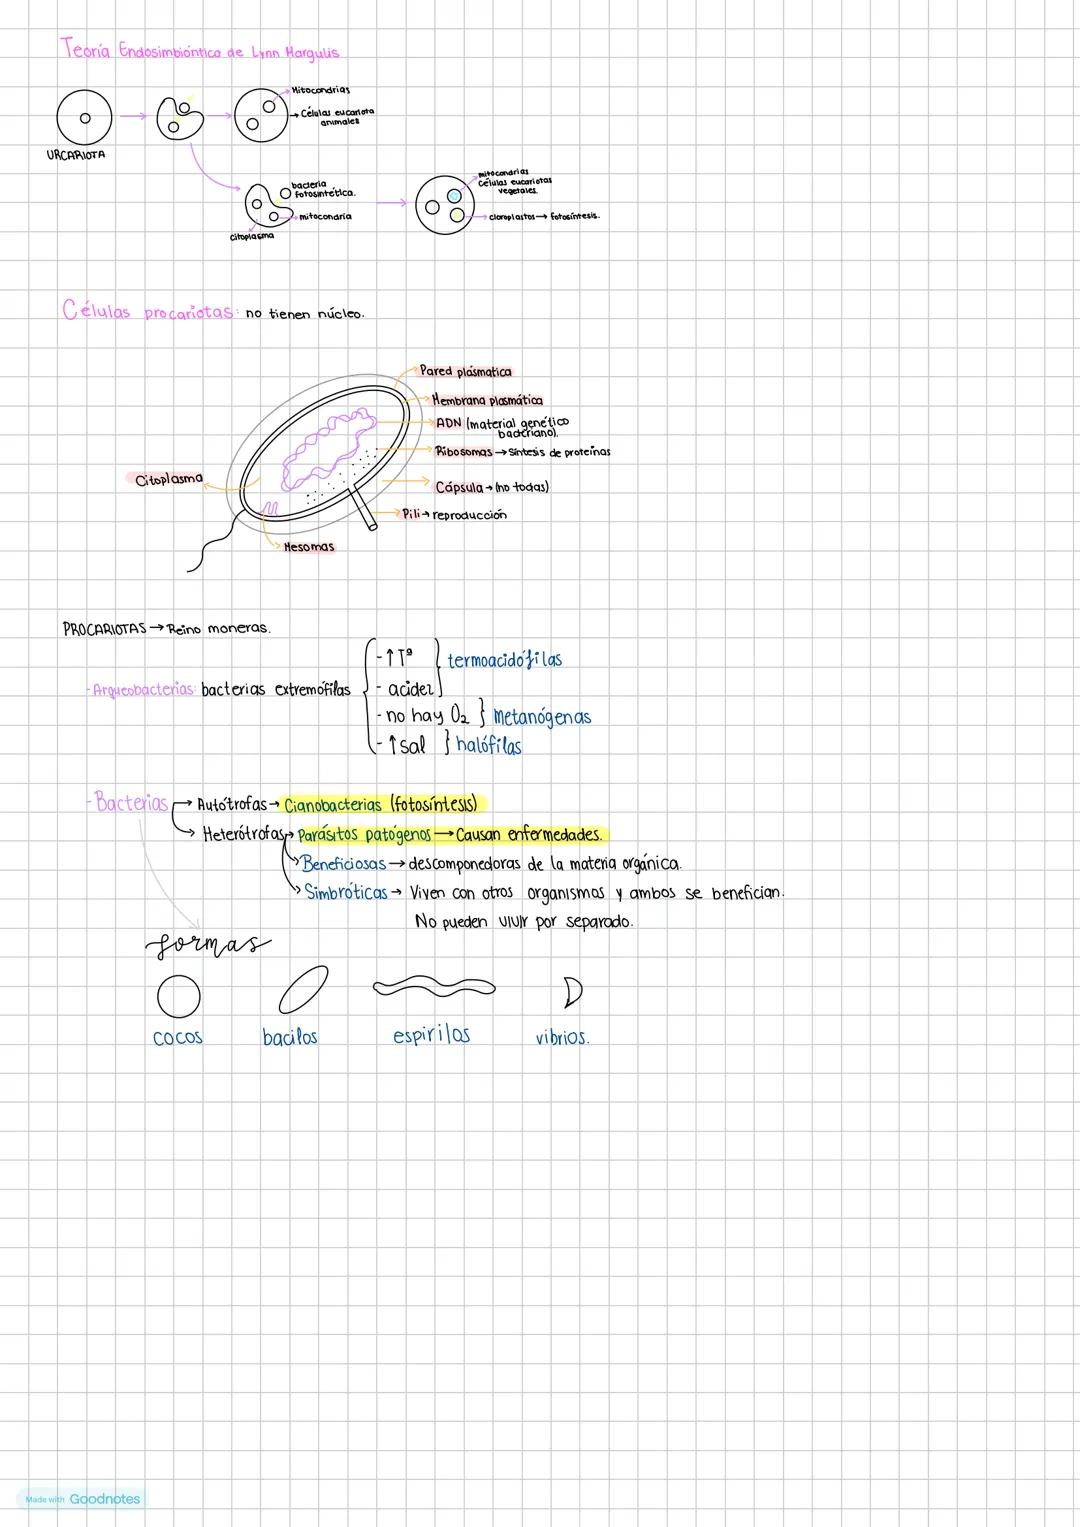 Teoría Endosimbióntica de Lynn Margulis
Mitocondrias
→ Células eucariota
animales
URCARIOTA
bacteria
fotosintética.
mitocondria
citoplasma
mitocondrias
Células eucariotas
vegetales.
cloroplastos → fotosíntesis.
Células procariotas: no tienen núcleo.
Pared plásmatica
Membrana plasmática
ADN (material genético
bacteriano).
Ribosomas → Síntesis de proteínas
Citoplasma
Cápsula → (no todas)
Pili → reproducción
Mesomas
PROCARIOTAS → Reino moneras.
- ↑ Tª } termoacidófilas
- Arqueobacterias: bacterias extremófilas { - acidez
- no hay O₂ } Metanógenas
- ↑ sal } halófilas
- Bacterias → Autótrofas → Cianobacterias (fotosíntesis)
→ Heterótrofas → Parásitos patógenos → Causan enfermedades.
→ Beneficiosas → descomponedoras de la materia orgánica.
→ Simbróticas → Viven con otros organismos y ambos se benefician.
No pueden vivir por separado.
formas
cocos bacilos espirilos vibrios.
Made with Goodnotes